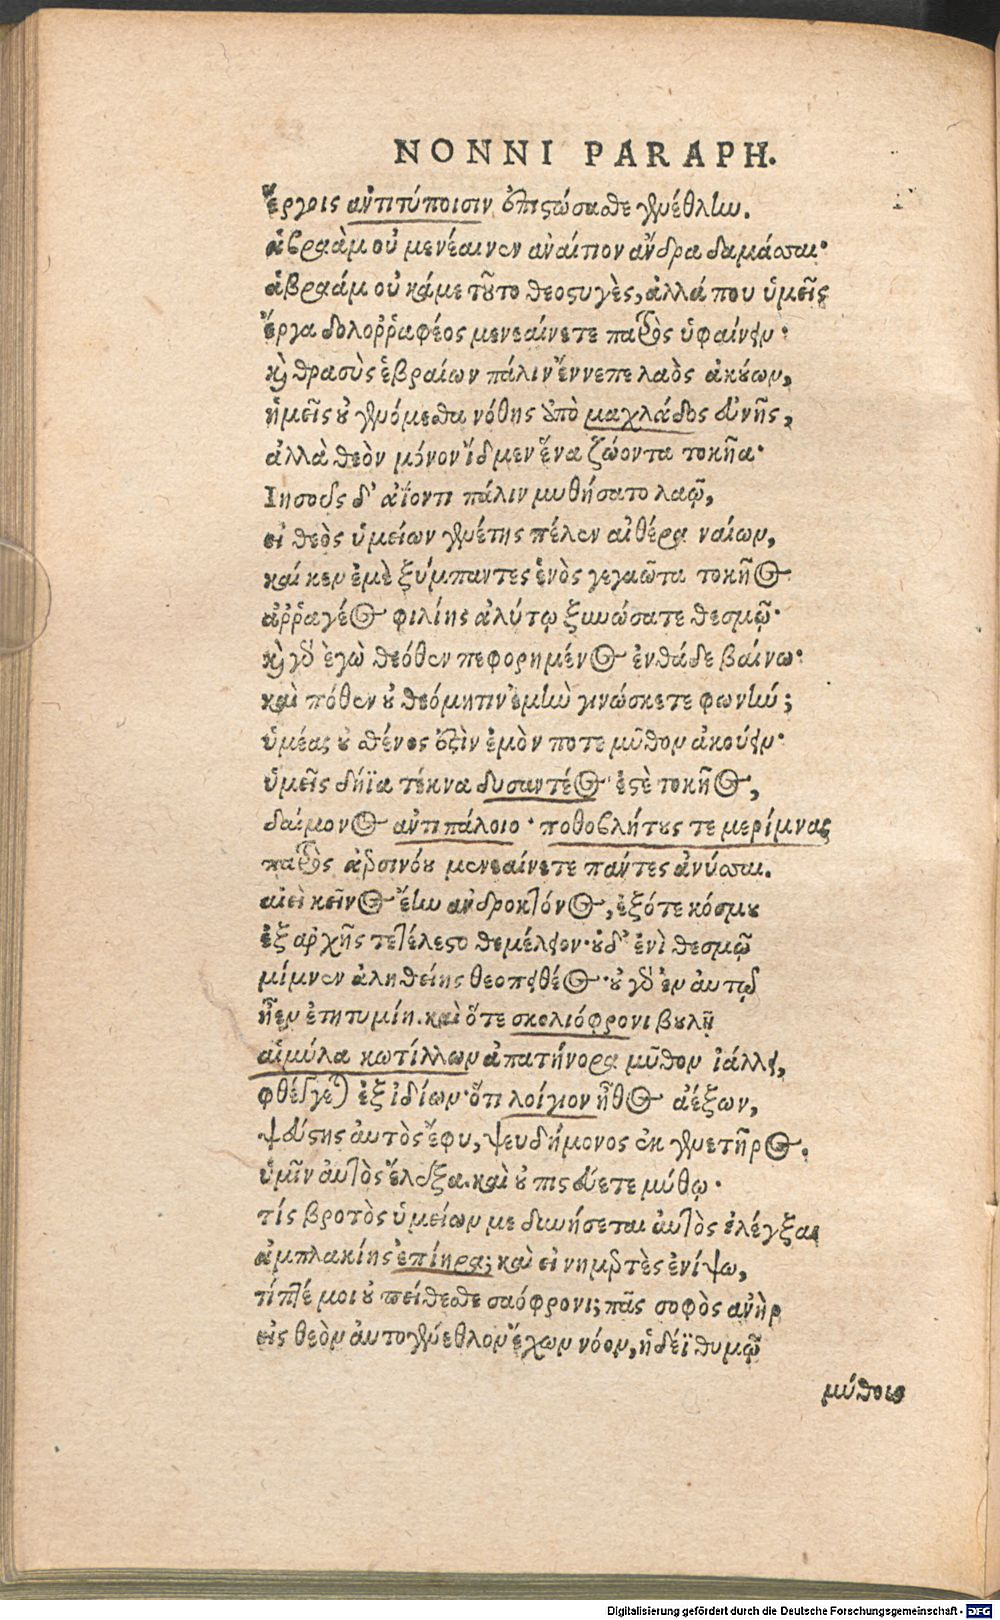 NONNI PARAPH.
ἔργοις ἀντιτύποισιν ἐπιστώσασθε γενέθλην.
ἀβραὰμ οὐ μενέαινεν ἀναίτιον ἄνδρα δαμάσσαι·
ἀβραάμ οὐ κάμε τοῦτο θεοστυγὲς, ἀλλά που ὑμεῖς
ἔργα δολοῤῥαφέος μενεαίνετε πατρὸς ὑφαίνειν·
καὶ θρασὺς ἑβραίων πάλιν ἔννεπε λαὸς ἀκούων,
ἡμεῖς οὐ γενόμεσθα νόθης ὑπὸ μαχλάδος εὐνῆς,
ἀλλὰ θεὸν μόνον ἴδμεν ἕνα ζώοντα τοκῆα·
Ιησοῦς δ' ἀΐοντι πάλιν μυθήσατο λαῷ,
εἰ θεὸς ὑμείων γενέτης πέλεν αἰθέρα ναίων,
καί κεν ἐμὲ ξύμπαντες ἑνὸς γεγαῶτα τοκῆος
ἀῤῥαγέος φιλίης ἀλύτῳ ξυνώσατε θεσμῷ·
καὶ γὰρ ἐγὼ θεόθεν πεφορημένος ἐνθάδε βαίνω·
καὶ πόθεν οὐ θεόμητιν ἐμὴν γινώσκετε φωνήν;
ὑμέας οὐ σθένος ἐστὶν ἐμὸν ποτε μῦθον ἀκούειν·
ὑμεῖς δήϊα τέκνα δυσαντέος ἐστὲ τοκῆος,
δαίμονος ἀντιπάλοιο· ποθοβλήτους τε μερίμνας
πατρὸς ἀρσινόου μενεαίνετε πάντες ἀνύσσαι.
αἰεὶ κεῖνος ἔην ἀνδροκτόνος, ἐξότε κόσμου
ἐξ ἀρχῆς τετέλεστο θεμέλιον· οὐδ' ἐνὶ θεσμῷ
μίμνεν ἀληθείης θεοπειθέος· οὐ γὰρ ἐν αὐτῷ
ἦεν ἐτητυμίη. καὶ ὅτε σκολιόφρονι βουλῇ
αἱμύλα κωτίλλων ἀπατήνορα μῦθον ἰάλλει,
φθέγγεται ἐξ ἰδίων· ὅτι λοίγιον ἦθος ἀέξων,
ψεύστης αὐτὸς ἔφυ, ψευδήμονος ἐκ γενετῆρος.
ὑμῖν αὐτὸς ἔλεξα. καὶ οὐ πιστεύετε μύθῳ·
τίς βροτὸς ὑμείων με δυνήσεται αὐτὸς ἐλέγξαι
ἀμπλακίης ἐπίηρα; καὶ εἰ νημερτὲς ἐνίψω,
τίπτέ μοι οὐ πείθεσθε σαόφρονι; πᾶς σοφὸς ἀνὴρ
εἰς θεὸν αὐτογένεθλον ἔχων νόον, ἡδέϊ θυμῷ
μύθοις
Digitalisierung gefördert durch die Deutsche Forschungsgemeinschaft - DFG